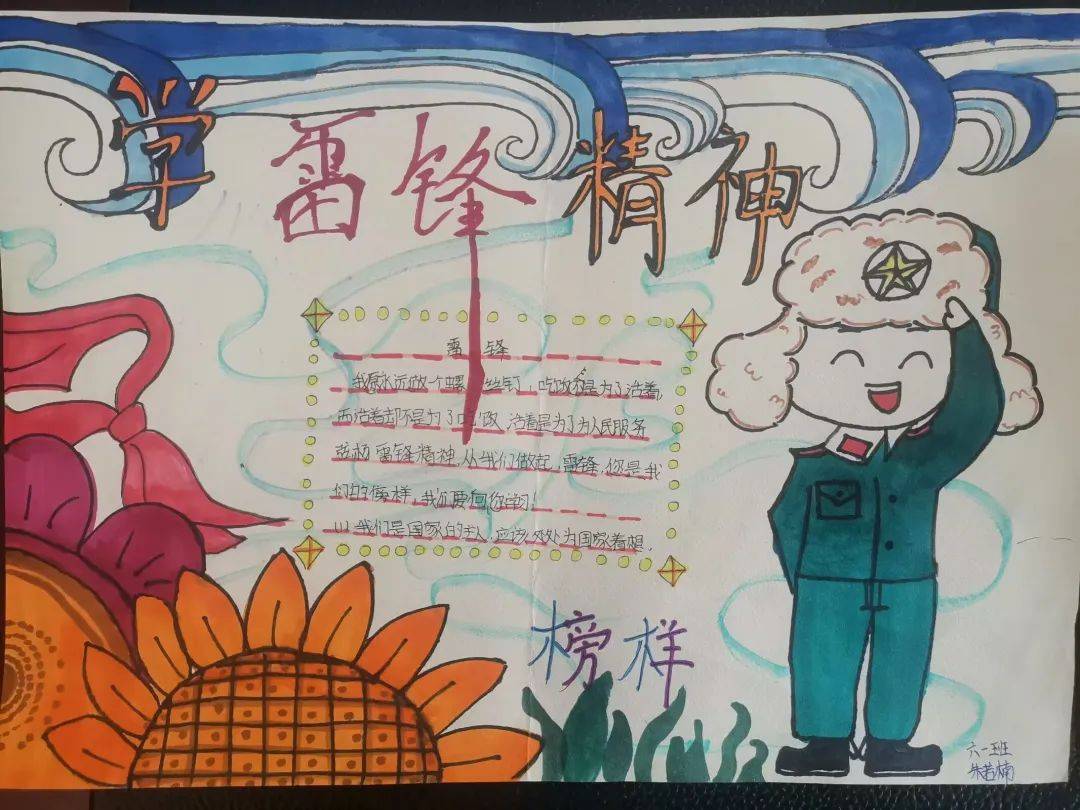 学雷锋精神
雷锋
我愿永远做一个螺丝钉,吃饭是为了活着,
而活着却不是为了吃饭,活着是为了为人民服务
弘扬雷锋精神,从我们做起,雷锋,您是我
们的榜样,我们要向您学习!
(1)我们是国家的主人,应该处处为国家着想.
榜样
六一班
朱若楠